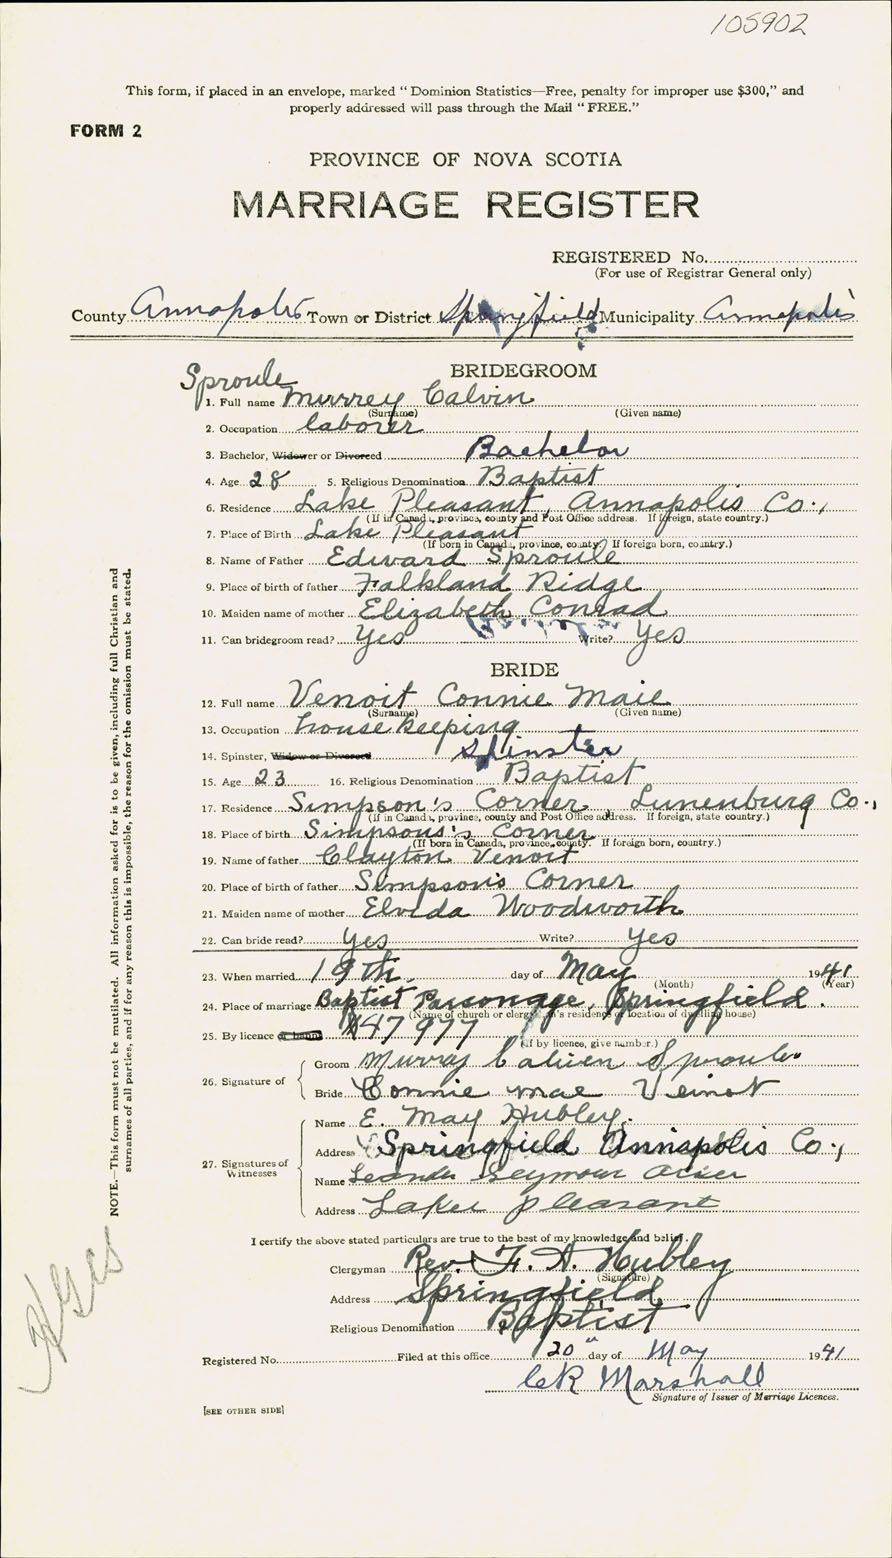 105902
This form, if placed in an envelope, marked "Dominion Statistics—Free, penalty for improper use $300," and
properly addressed will pass through the Mail "FREE."
FORM 2
PROVINCE OF NOVA SCOTIA
MARRIAGE REGISTER
REGISTERED No.
(For use of Registrar General only)
County Annapolis Town or District Springfield Municipality Annapolis
BRIDEGROOM
Sproule
1. Full name Murrey Calvin
(Surname) (Given name)
2. Occupation laborer
3. Bachelor, Widower or Divorced Bachelor
4. Age 28 5. Religious Denomination Baptist
6. Residence Lake Pleasant, Annapolis Co.,
(If in Canada, province, county and Post Office address. If foreign, state country.)
7. Place of Birth Lake Pleasant
(If born in Canada, province, county. If foreign born, country.)
8. Name of Father Edward Sproule
9. Place of birth of father Falkland Ridge
10. Maiden name of mother Elizabeth Conrad
11. Can bridegroom read? Yes Write? Yes
BRIDE
12. Full name Venoit Connie Maie
(Surname) (Given name)
13. Occupation housekeeping
14. Spinster, Widow or Divorced Spinster
15. Age 23 16. Religious Denomination Baptist
17. Residence Simpson's Corner, Lunenburg Co.,
(If in Canada, province, county and Post Office address. If foreign, state country.)
18. Place of birth Simpsons's Corner
(If born in Canada, province, county. If foreign born, country.)
19. Name of father Clayton Venoit
20. Place of birth of father Simpson's Corner
21. Maiden name of mother Elveda Woodworth
22. Can bride read? Yes Write? Yes
23. When married 19th. day of May 1941
(Month) (Year)
24. Place of marriage Baptist Parsonage, Springfield.
(Name of church or clergyman's residence or location of dwelling house)
25. By licence or banns #47977
(If by licence, give number.)
26. Signature of
Groom Murray Calvien Sproule
Bride Connie mae Veinot
27. Signatures of Witnesses
Name E. May Hubley.
Address Springfield Annapolis Co.,
Name Seymour
Address Lake Pleasant
I certify the above stated particulars are true to the best of my knowledge and belief.
Clergyman Rev. F. A. Hubley
(Signature)
Address Springfield
Religious Denomination Baptist
Registered No. Filed at this office 20" day of May 1941
Marshall
Signature of Issuer of Marriage Licences.
[SEE OTHER SIDE]
NOTE.—This form must not be mutilated. All information asked for is to be given, including full Christian and
surnames of all parties, and if for any reason this is impossible, the reason for the omission must be stated.